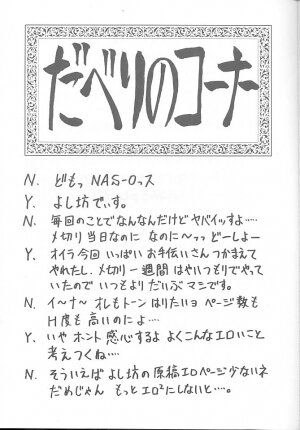 だべりのコーナー
N. どもっ NAS-Oっス
Y. よし坊でぃす。
N. 毎回のことでなんなんだけどヤバイッすよ……
メ切り当日なのに なのに〜ッッ どーしよー
Y. オイラ今回 いっぱい お手伝いさん つかまえて
やれたし. メ切り一週間 はやいつもりでやって
いたので いつもより だいぶ マシです。
N. イ〜ナ〜 オレもトーン はりたいョ ページ数も
H度も 高いのによ……
Y. いや ホント 感心するよ よくこんなエロいこと
考えつくね……
N. そういえば よし坊の原稿エロページ少ないネ
だめじゃん もっとエロ²にしないと……。